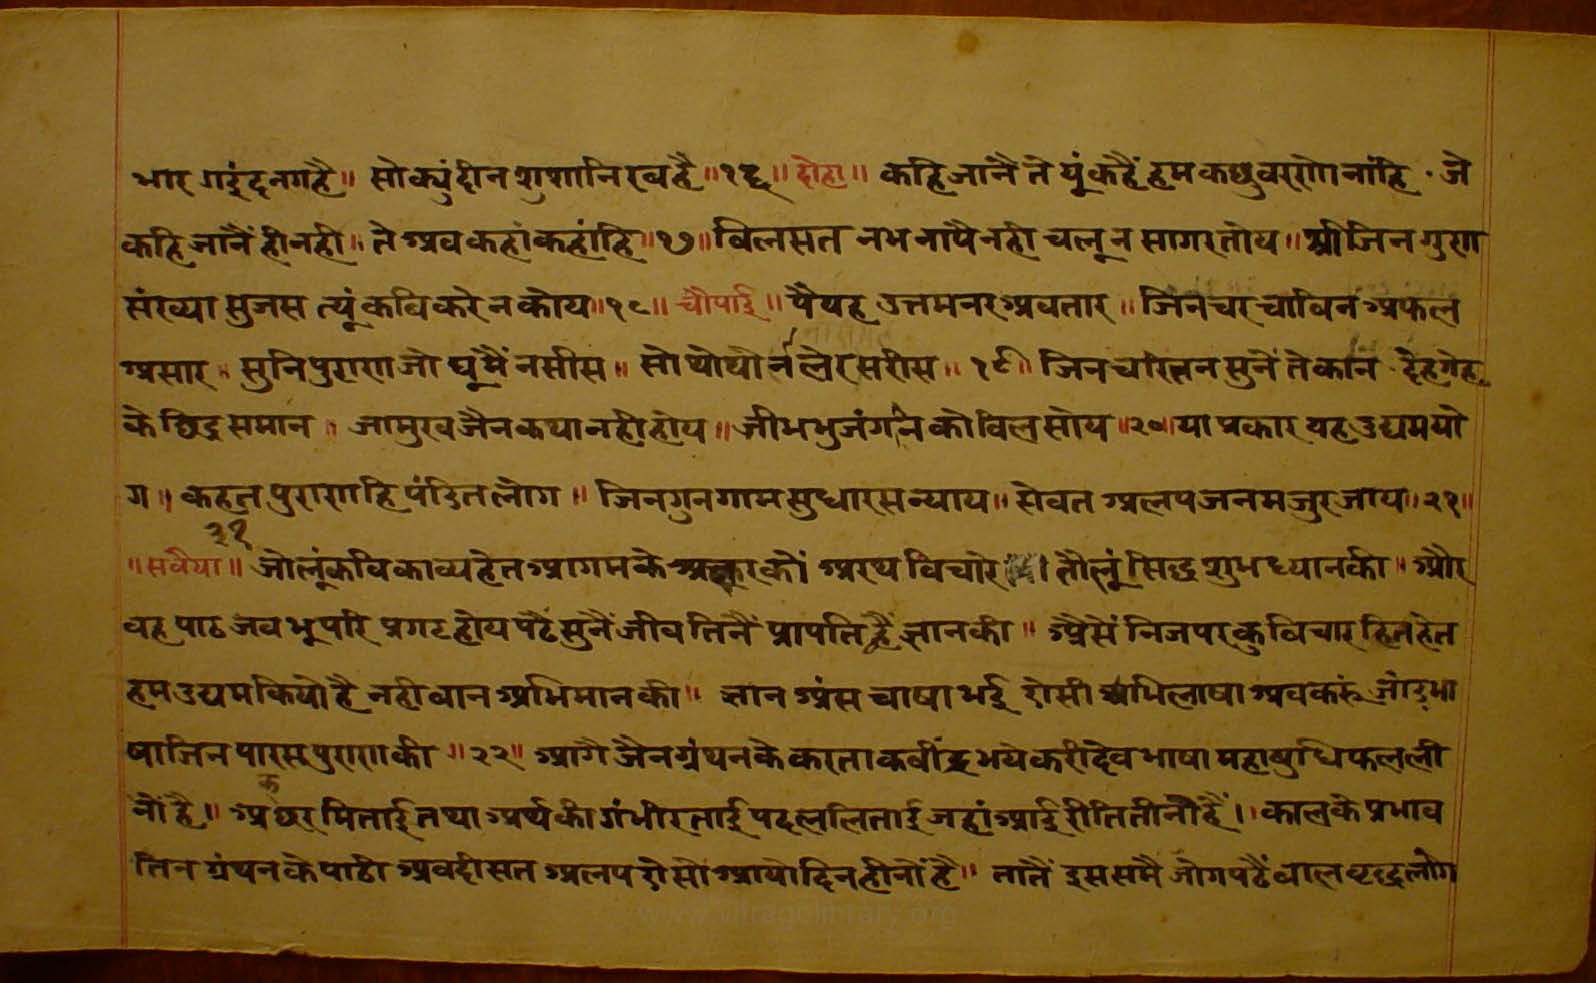 भार गइंद न गहै॥ सो क्युं दीन शुशा निरवहै॥१६॥ दोहा॥ कहि जानै ते यूं कहैं हम कछु वरणो नांहि · जे
कहि जानैं ही नही॥ ते अब कहां कहांहि॥१७॥ विलसत नभ नापै नही चलू न सागर तोय॥ श्री जिन गुण
संख्या सुजस त्यूं कवि करे न कोय॥१८॥ चौपाई॥ पै यह उत्तम नर अवतार॥ जिन चरचा विन अफल
असार॥ सुनि पुराण जो घूमैं न सीस॥ सो थोथो नलेर सरीस॥१९॥ जिन चरित्र न सुनें ते कान · देह गेह
के छिद्र समान॥ जा मुख जैन कथा नही होय॥ जीभ भुजंगनि को विल सोय॥२०॥ या प्रकार यह उद्यम यो
ग॥ कहत पुराणहि पंडित लोग॥ जिन गुन गाम सुधारस न्याय॥ सेवत अलप जनम जुर जाय॥२१॥
॥सवैया॥ ३१ जोलूं कवि काव्य हेत आगम के अक्षर कों अरथ विचारे। तौलूं सिद्ध शुभ ध्यान की॥ और
वह पाठ जब भू परि प्रगट होय पढैं सुनैं जीव तिनैं प्रापति ह्वैं ज्ञान की॥ अैसें निज पर कु विचार हित हेत
हम उद्यम कियो है नही वान अभिमान की॥ ज्ञान अंस चाषा भई ऐसी अभिलाषा अब करूं जोंइ भा
षा जिन पारस पुराण की॥२२॥ आगै जैन ग्रंथन के करता कवींद्र भये करी देव भाषा महा बुधि फल ली
नों है॥ अक्षर मिताई तथा अर्थ की गंभीरताई पद ललिताई जहां आई रीति तीनों हैं॥ काल के प्रभाव
तिन ग्रंथन के पाठी अब दीसत अलप ऐसो आयो दिन हीनों है॥ तातैं इस समै जोग पढैं बाल वृद्ध लोग
www.vitragelibrary.org